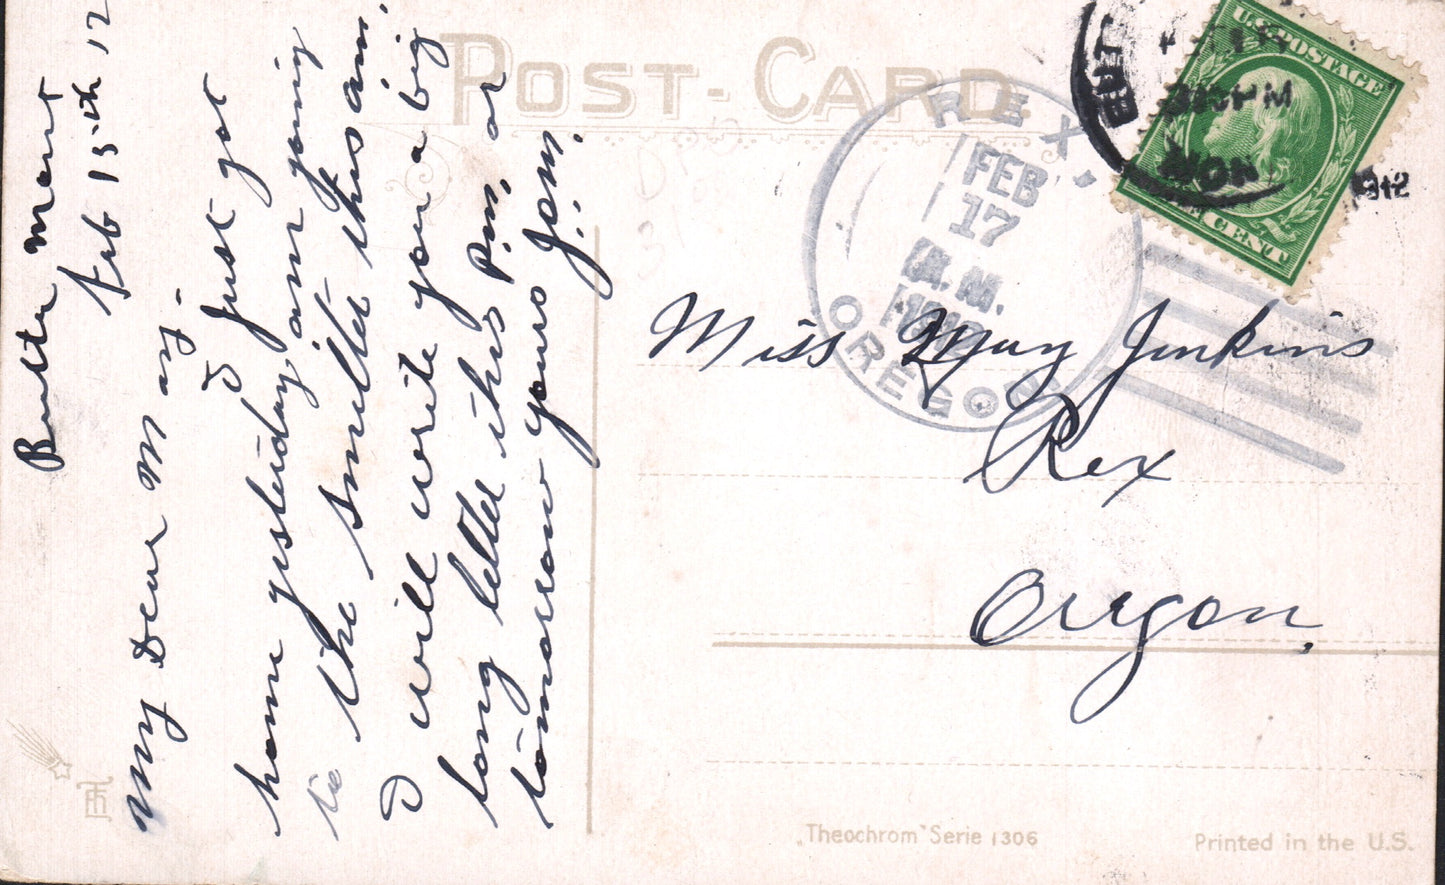 POST-CARD
Butte Mont
Feb 15th 12
My Dear May.
I just got
home yesterday, am going
to the smelter this am.
I will write you a big
long letter this P.m. or
tomorrow yours Jom.
Miss May Jenkins
Rex
Oregon,
REX.
FEB
17
A.M.
1912
OREGON
MON
1912
U.S. POSTAGE
CENT
DPO
Theochrom Serie 1306
Printed in the U.S.